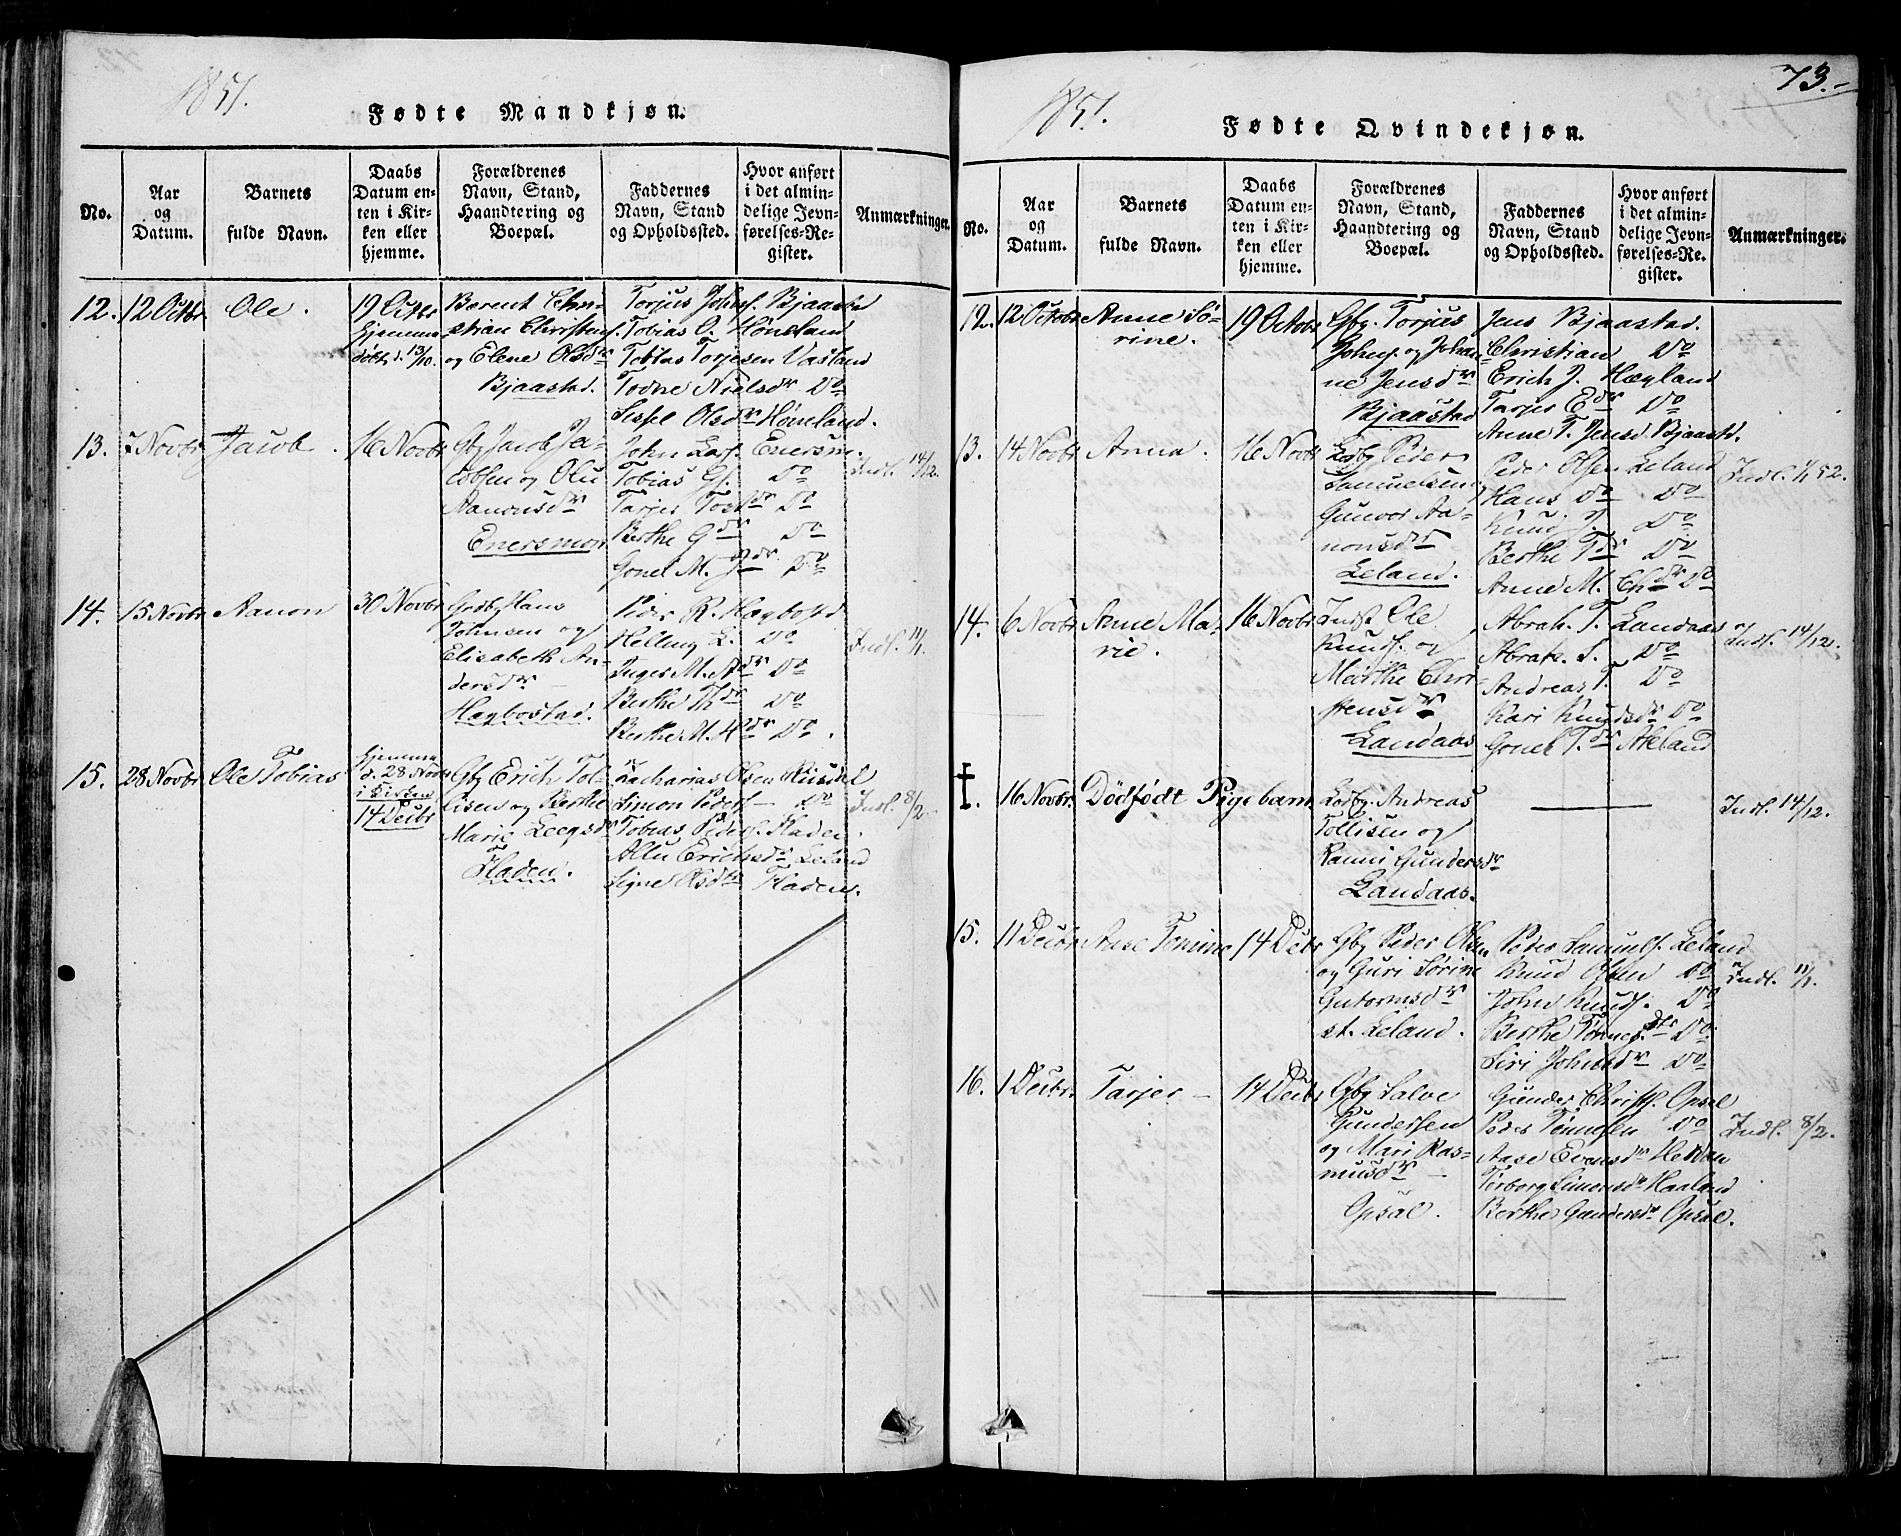 1851.
Fødte Mandkjøn.
No.
Aar og Datum.
Barnets fulde Navn.
Daabs Datum enten i Kirken eller hjemme.
Forældrenes Navn, Stand, Haandtering og Boepæl.
Faddernes Navn, Stand og Opholdssted.
Hvor anført i det almindelige Jevnførelses-Register.
Anmærkninger.
12. 12 Octbr Ole.
19 Octbr
Hjemme
døbt d. 13/10.
Berent Chri-
stian Christens.
og Elene Olsdr
Bjaastad.
Torjus Johns. Bjaastad
Tobias O. Høneland
Tobias Torjesen Vasland
Todne Nielsdr Do
Sissel Olsdr Høneland.
13. 7 Novbr Jacob.
16 Novbr
Gbr Jacob Ja-
cobsen og Olu
Aanonsdr
Enersmon
John Lars. Enersm.
Tobias G. Do
Tarjer dr Do
Berthe Gdr Do
Gonel M. Jdr Do
Indl. 14/12.
14. 15 Novbr Aanon
30 Novbr
Hans
Johnsen og
Elisabeth An-
dersdr
Hægbostad.
Peder R. Hægbostd
Helling L. Do
Inger M. Adr Do
Berthe Thdr Do
Berthe M. Hdr Do.
Indl. 11/1.
15. 28 Novbr Ole Tobias
Hjemme
d. 28 Novbr
i Kirken
14 Decbr
Gbr Erich Tol-
lisen og Berthe
Marie Leegsdr
Haden.
Zacharias Olsen Risdal
Simon Peders. Do
Tobias Peders. Haden.
Allu Erichsdr Leland
Signe Olsdtr Haden.
Indl. 8/2.
73.
1851.
Fødte Qvindekjøn.
No.
Aar og Datum.
Barnets fulde Navn.
Daabs Datum enten i Kirken eller hjemme.
Forældrenes Navn, Stand, Haandtering og Boepæl.
Faddernes Navn, Stand og Opholdssted.
Hvor anført i det almindelige Jevnførelses-Register.
Anmærkninger.
12. 12 Octobr Anne Sø-
rine.
19 Octobr
Gbr. Torjus
Johns. og Johan-
ne Jensdr
Bjaastad
Jens Bjaastad.
Christian Do
Erich J. Hægland
Tarjer Edr Do
Anne T. Jensd Bjaastd.
13. 14 Novbr Anna.
16 Novbr
Peder
Samuelsen,
Gunvor Aa-
nonsdr
Leland.
Peder Olsen Leland
Hans Do Do
Knud J. Do
Berthe Tdr Do
Anne M. Chdr Do
Indl. 1/1 52.
14. 6 Novbr Anne Ma-
rie.
16 Novbr
Inds. Ole
Knuds. og
Marthe Chri-
stensdr
Landaas
Abrah. T. Landaas
Abrah. S. Do
Andreas T. Do
Kari Knudsdr Do
Gonel T.dr Aceland
Indl. 14/12.
†. 16 Novbr. Dödfödt Pigebarn.
Andreas
Tollisen og
Ranni Gundersdr
Landaas.
Indl. 14/12.
15. 11 Decbr Anse Tomine
14 Decbr
Gbr Peder Olsen
og Guri Sørine
Gutormsdr
st. Leland.
Peder Samuels. Leland
Knud Olsen Do
John Knuds. Do
Berthe Tønnes.dtr Do.
Siri Johnsdr Do
Indl. 11/1.
16. 1 Decbr. Tarjer
14 Decbr
Gbr Salve
Gundersen
og Mari Ras-
musdr
Opsal.
Gunder Christ. Opsal
Peder Tønnesen Do
Aase Evensdr Heddan
Torborg Simonsdr Haaland
Berthe Gundersdr Opsal.
Indl. 8/2.